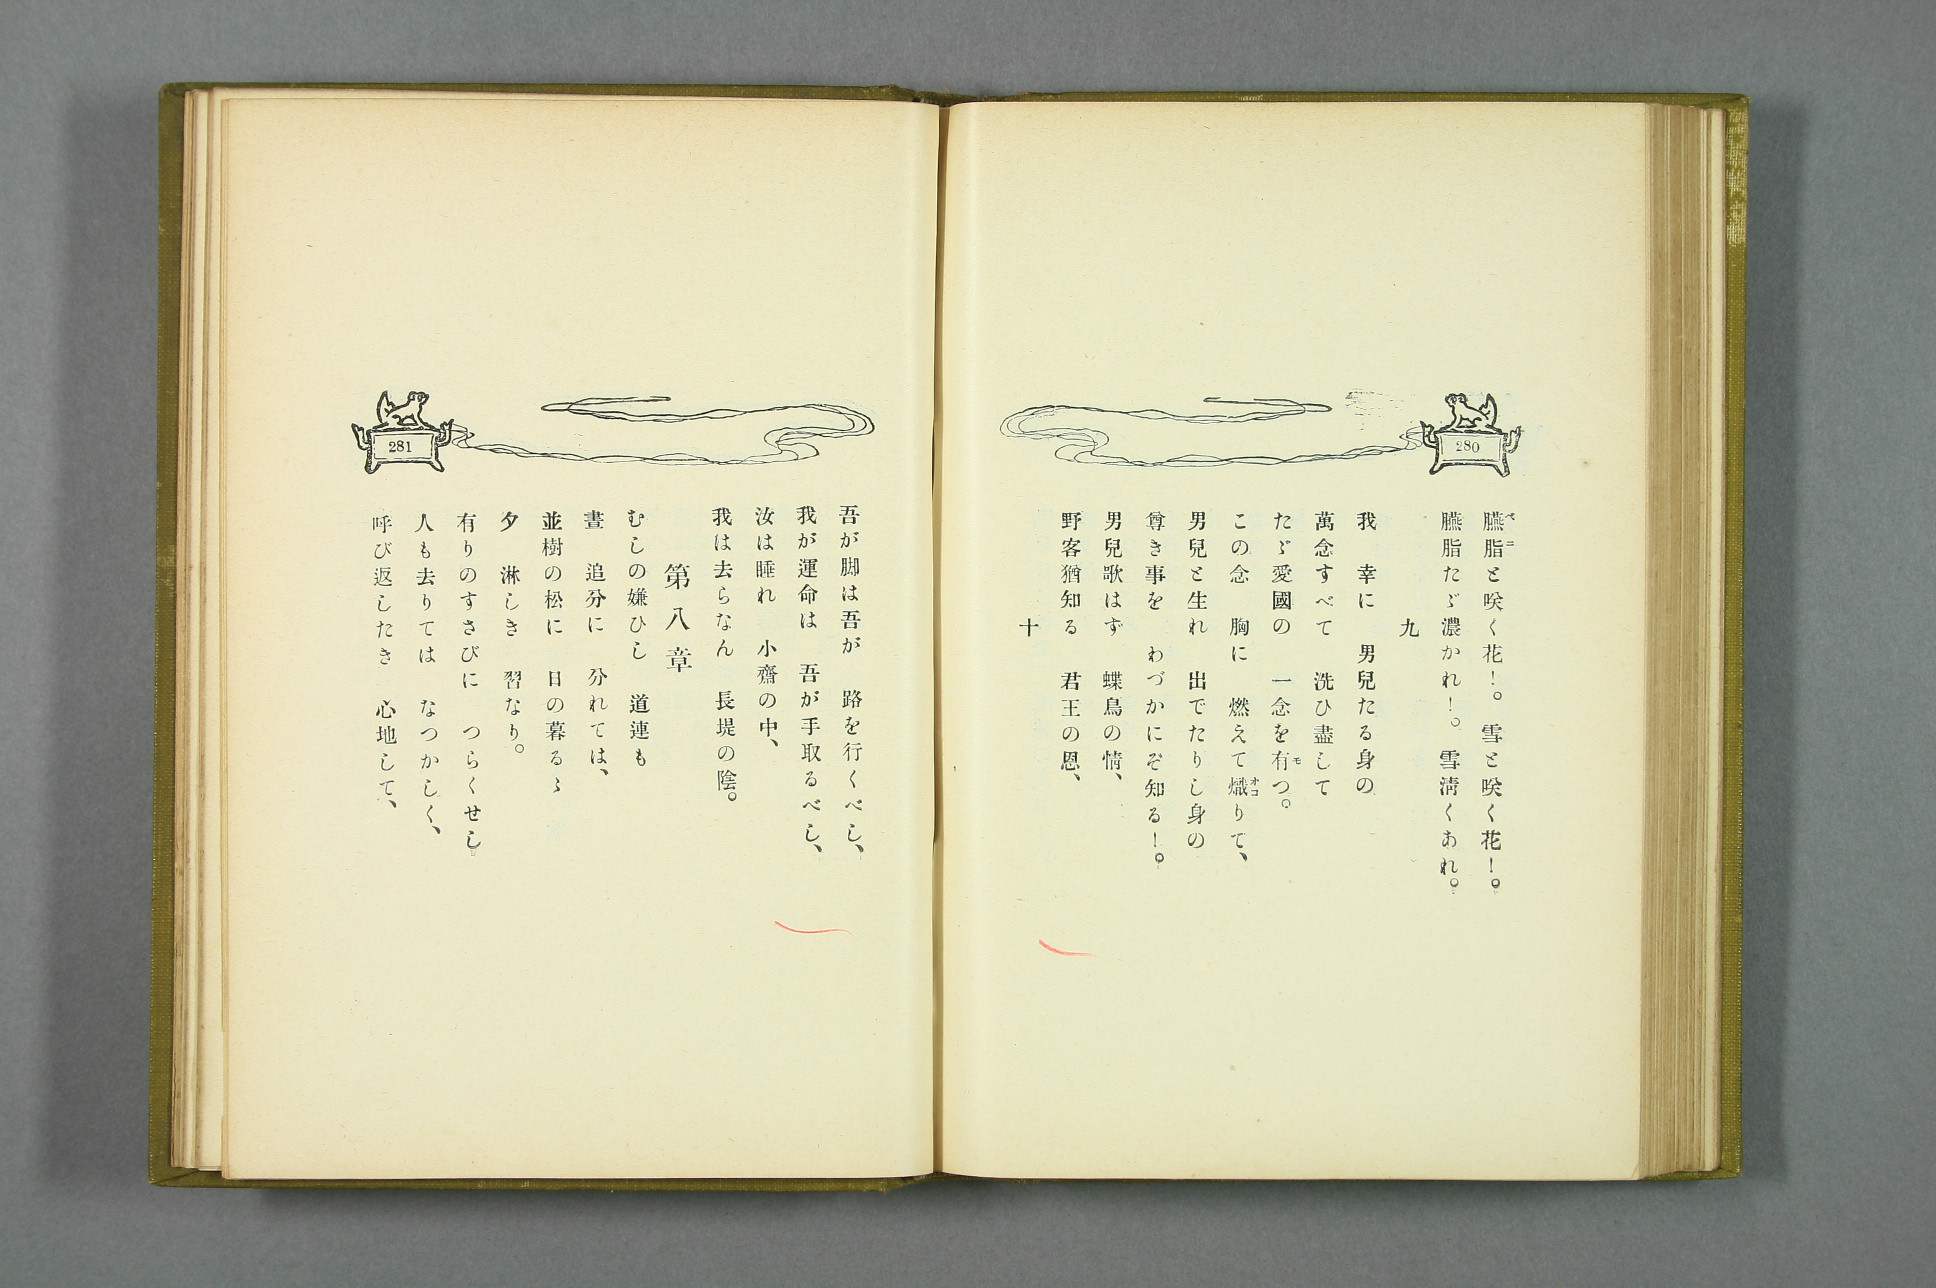 280
臙脂と咲く花！。雪と咲く花！。
臙脂たゞ濃かれ！。雪淸くあれ。
九
我　幸に　男兒たる身の
萬念すべて　洗ひ盡して
たゞ愛國の　一念を有つ。
この念　胸に　燃えて熾りて、
男兒と生れ　出でたりし身の
尊き事を　わづかにぞ知る！。
男兒歌はず　蝶鳥の情、
野客猶知る　君王の恩、
十
281
吾が脚は吾が　路を行くべし、
我が運命は　吾が手取るべし、
汝は睡れ　小齋の中、
我は去らなん　長堤の陰。
第八章
むしの嫌ひし　道連も
晝　追分に　分れては、
並樹の松に　日の暮るゝ
夕　淋しき　習なり。
有りのすさびに　つらくせし
人も去りては　なつかしく、
呼び返したき　心地して、